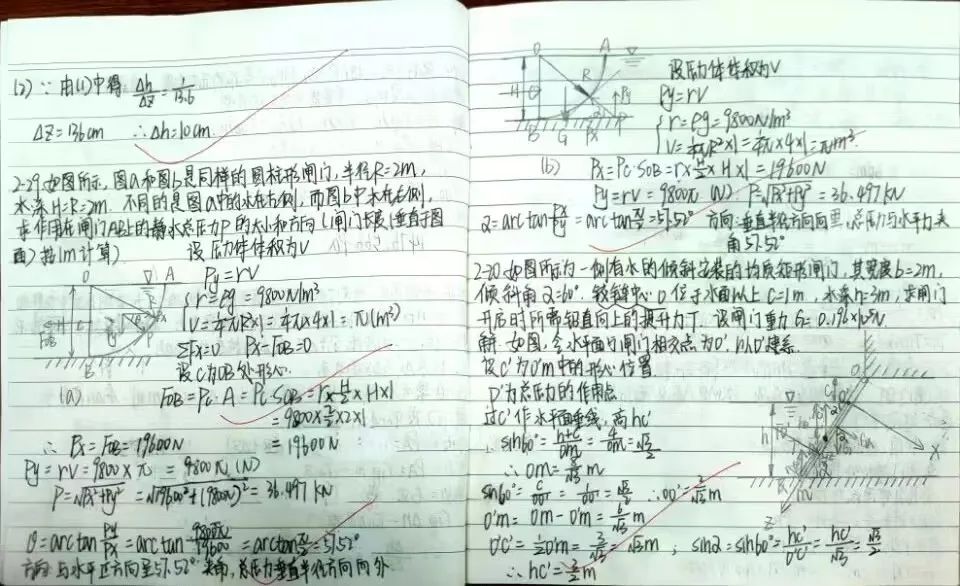 (2) ∵ 由(1)中得 Δh/ΔZ = 1/13.6
ΔZ=136cm ∴Δh=10cm
2-29.如图所示,图a和图b是同样的圆柱形闸门,半径R=2m,
水深H=R=2m,不同的是图a中的水在左侧,而图b中水在右侧,
求作用在闸门AB上的静水总压力P的大小和方向(闸门长度(垂直于图
面)按1m计算)
设压力体体积为V
Py=rV
r=ρg=9800N/m³
V=¼πR²×1=¼π×4×1=π(m³)
∑Fx=0 Px-FOB=0
设C为OB处形心
(a) FOB=Pc·A=Pc·SOB=r×H/2×H×1
=9800×2/2×2×1
=19600N
∴ Px=FOB=19600N
Py=rV=9800×π=9800π(N)
P=√Px²+Py²=√19600²+(9800π)²=36.497kN
θ=arctan Py/Px=arctan 9800π/19600=arctan π/2=57.52°
方向:与水平正方向呈57.52°夹角,总压力垂直半径方向向外
O A
H
B G Px P
R
Py
设压力体体积为V
Py=rV
r=ρg=9800N/m³
V=¼πR²×1=¼π×4×1=πm³
(b) Px=Pc·SOB=r×H/2×H×1=19600N
Py=rV=9800π(N) P=√Px²+Py²=36.497kN
α=arctan =arctan π/2=57.52° 方向:垂直半径方向向里,总压力与水平力夹
角57.52°
2-30.如图所示为一侧有水的倾斜安装的均质矩形闸门,其宽度b=2m,
倾斜角α=60°,铰链中心O位于水面以上C=1m,水深h=3m,求闸门
开启时所需铅直向上的提升力T,设闸门重力G=0.196×10⁵N
解:如图,令水平面与闸门相交点为O',以O建系
设C'为O'm中的形心位置
D'为总压力的作用点
过C'作水平面垂线,高hc'
∴ sin60°=(h+c)/Om=4/Om=√3/2
∴Om=8/√3 m
sin60°=C/OO'=1/OO'=√3/2 ∴OO'=2/√3 m
O'm=Om-O'm=6/√3 m
O'C'=½O'm=3/√3=√3m ; sinα=sin60°=hc'/O'C'=hc'/√3=√3/2
∴ hc'=3/2 m